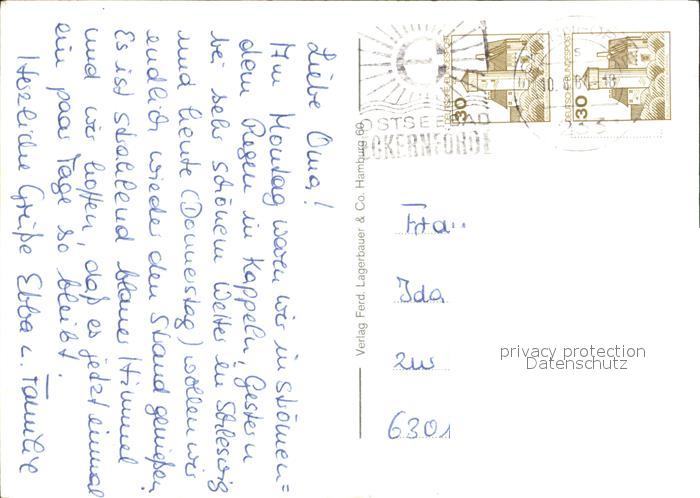 Liebe Oma!
Am Montag waren wir in strömen=
dem Regen in Kappeln, Gestern
bei sehr schönem Wetter in Schleswig
und heute (Donnerstag) wollen wir
endlich wieder den Strand genießen.
Es ist strahlend blauer Himmel
und wir hoffen, daß es jetzt einmal
ein paar Tage so bleibt!
Herzliche Grüße Ebba u. Familie
Verlag Ferd. Lagerbauer & Co. Hamburg 66
OSTSEEBAD
ECKERNFÖRDE
30
DEUTSCHE BUNDESPOST
30
DEUTSCHE BUNDESPOST
Frau
Ida
6301
privacy protection
Datenschutz